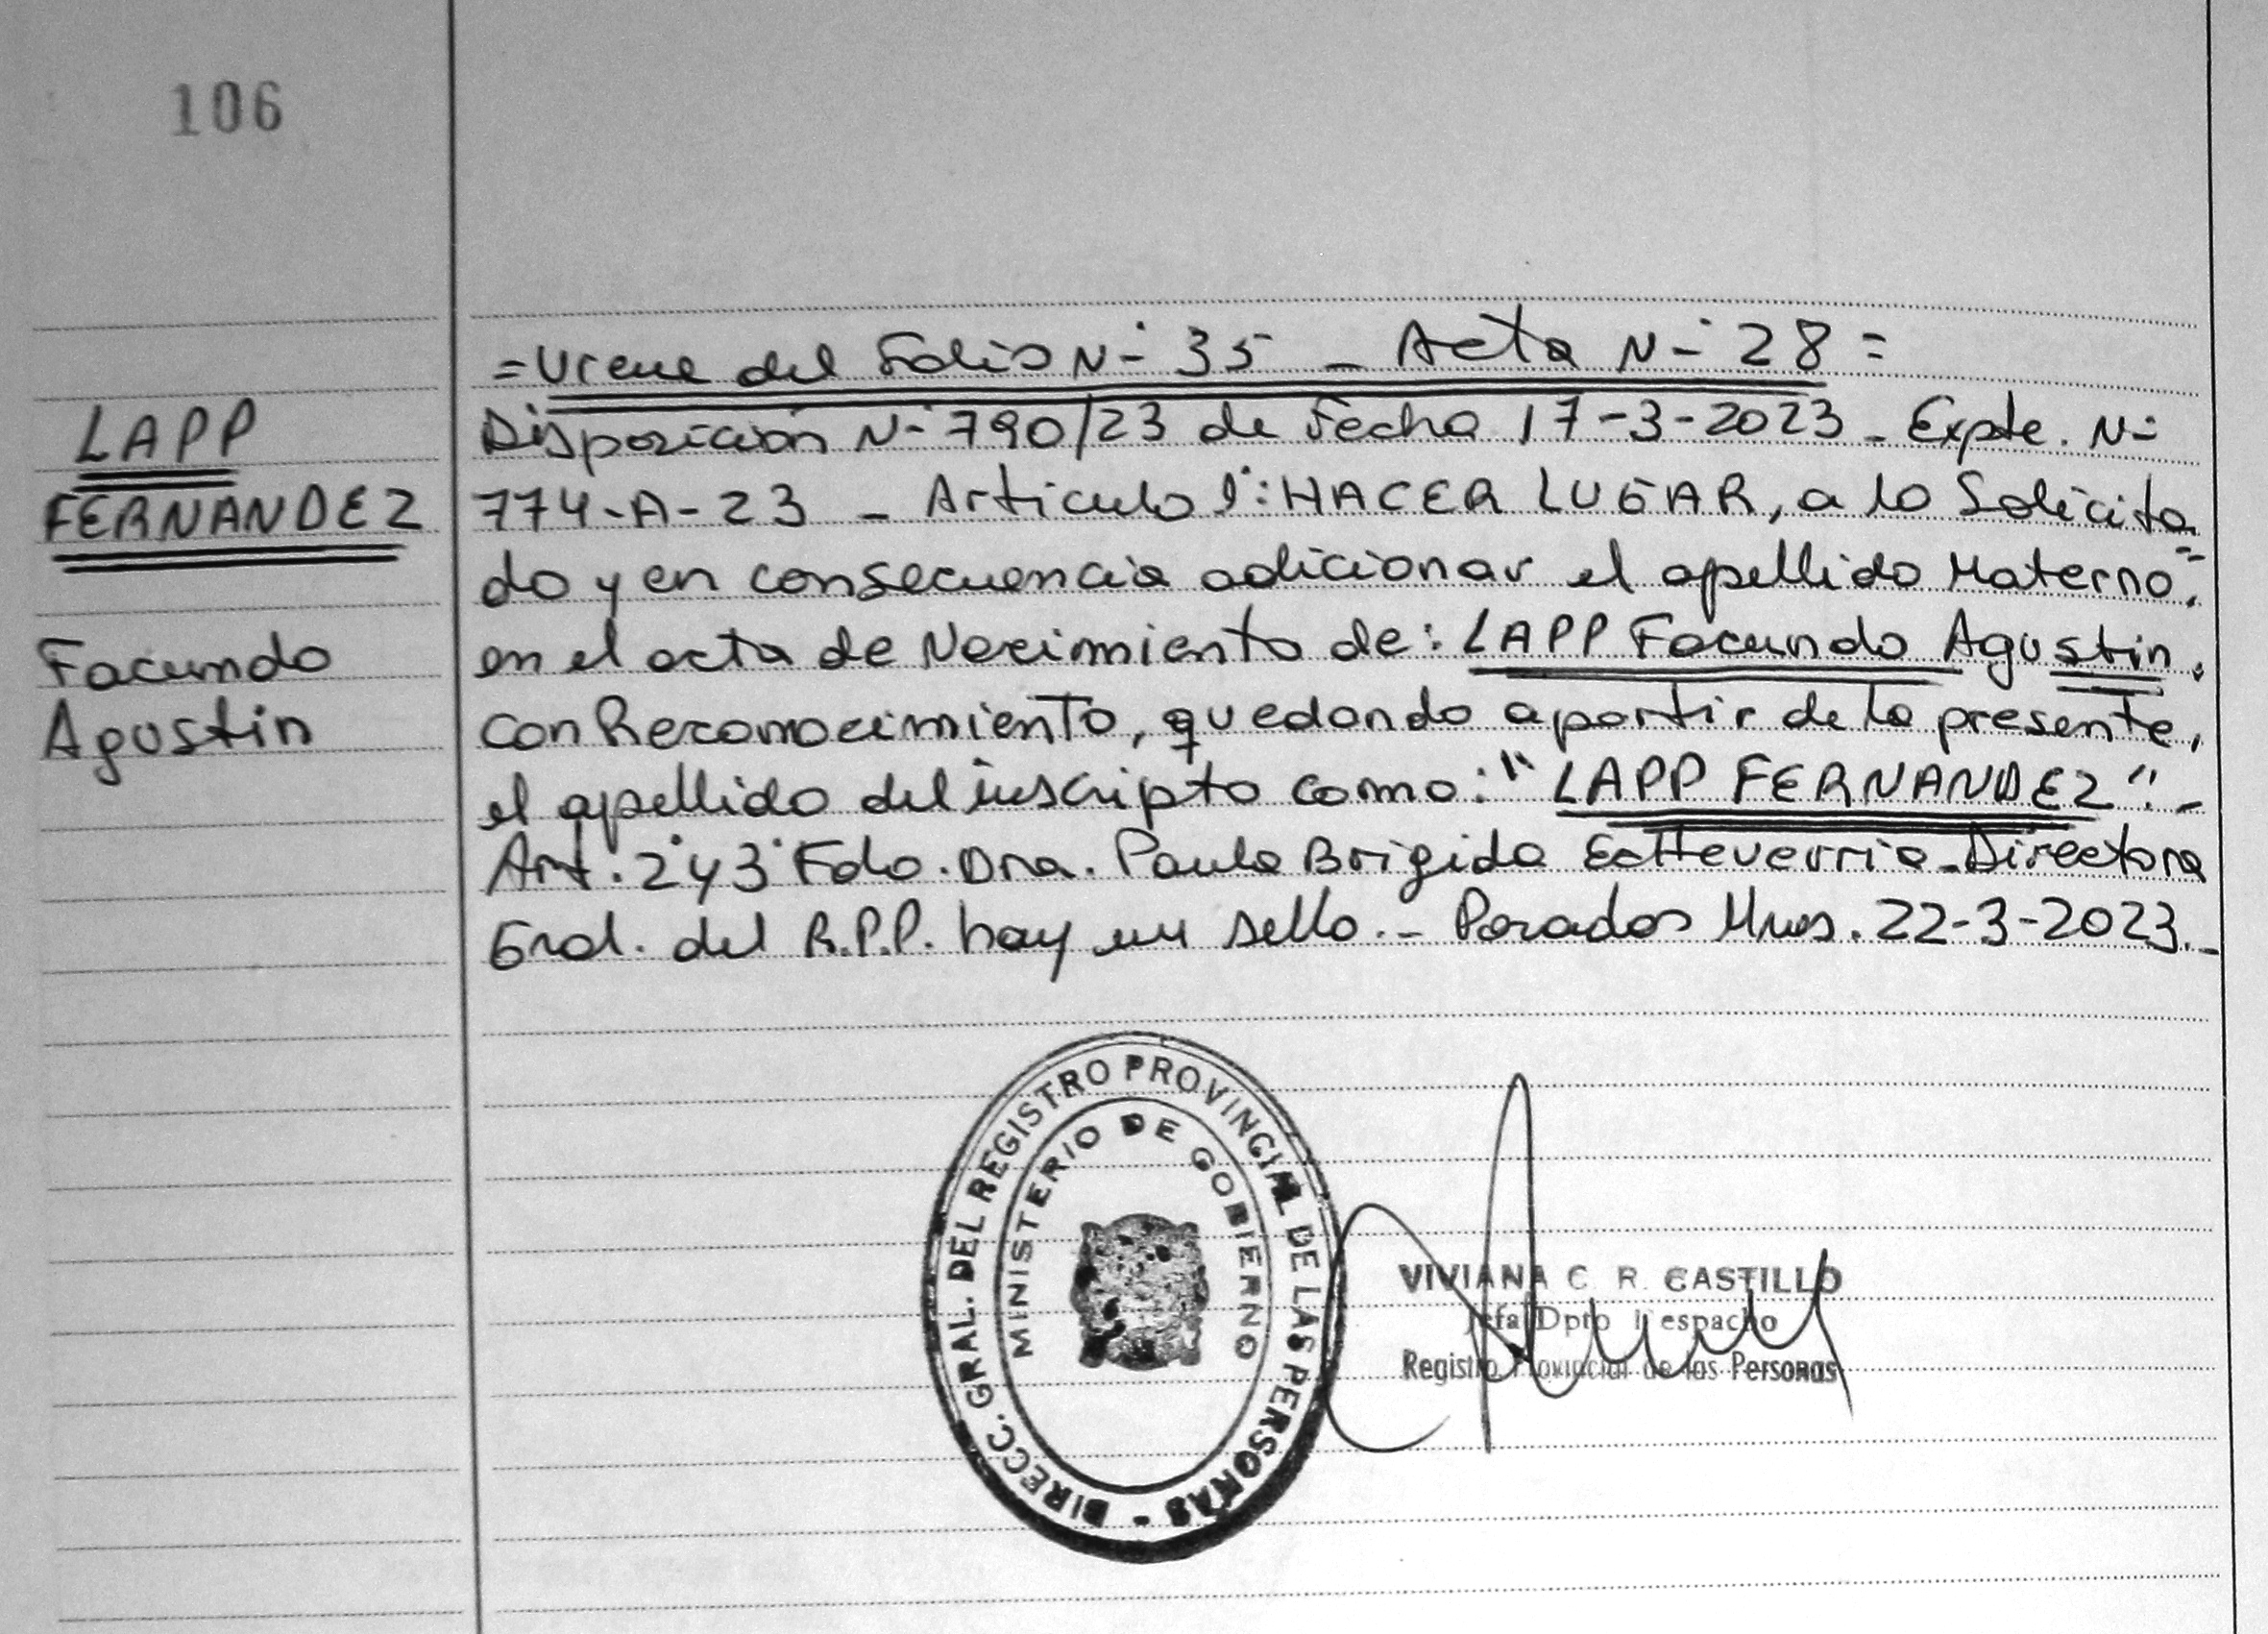 106
=Viene del Folio N° 35 _ Acta N° 28=
LAPP
FERNANDEZ
Facundo
Agustin
Disposición N° 790/23 de Fecha 17-3-2023 _ Expte. N°
774-A-23 _ Articulo 1°: HACER LUGAR, a lo Solicita
do y en consecuencia adicionar el apellido Materno,
en el acta de Nacimiento de: LAPP Facundo Agustin,
con Reconocimiento, quedando a partir de la presente,
el apellido del inscripto como: "LAPP FERNANDEZ".-
Art. 2° y 3° Fdo. Dra. Paula Brigida Etcheverria-Directora
Gral. del R.P.P. hay un sello.- Posadas Mnes. 22-3-2023.-
DIRECC. GRAL. DEL REGISTRO PROVINCIAL DE LAS PERSONAS -
MINISTERIO DE GOBIERNO
VIVIANA C. R. CASTILLO
Jefa Dpto Despacho
Registro Provincial de las Personas